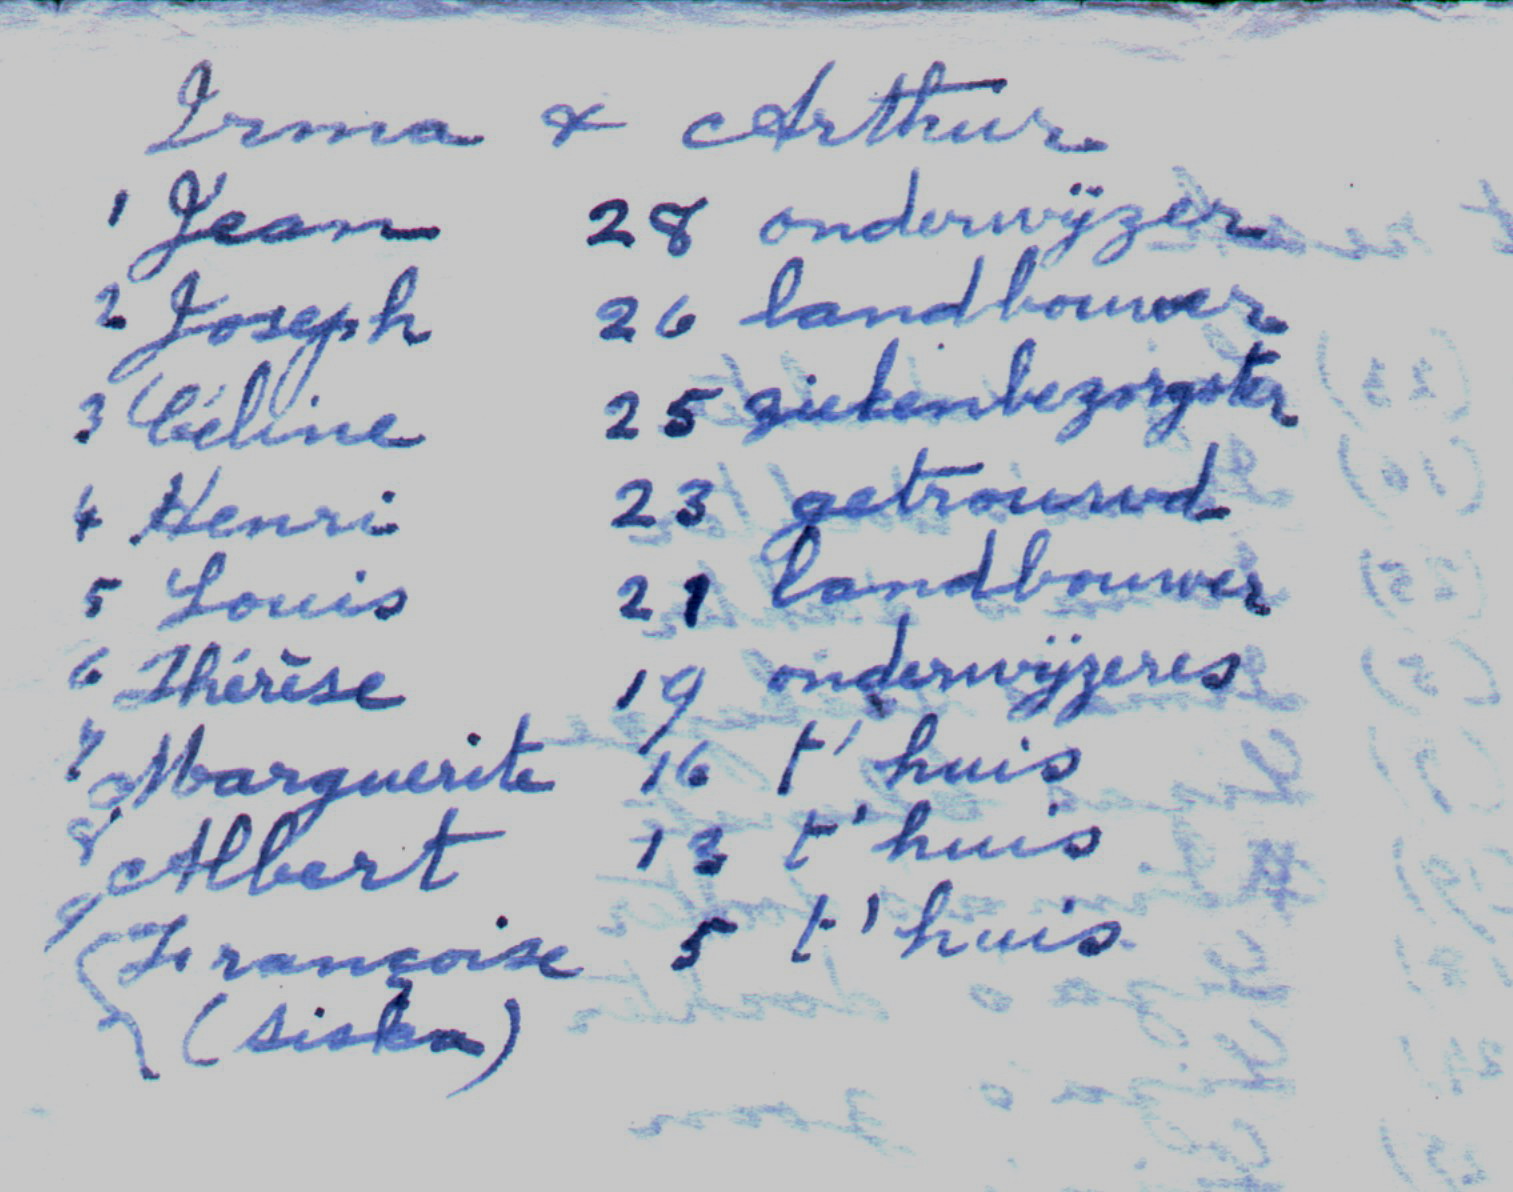 Irma & Arthur
1 Jean 28 onderwijzer
2 Joseph 26 landbouwer
3 Céline 25 ziekenbezorgster
4 Henri 23 getrouwd
5 Louis 21 landbouwer
6 Thérèse 19 onderwijzeres
7 Marguerite 16 t'huis
8 Albert 13 t'huis
9 Françoise 5 t'huis
(siska)